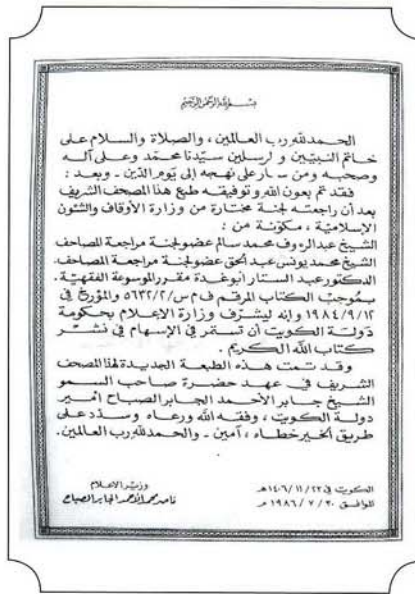 بسم الله الرحمن الرحيم
الحمد لله رب العالمين ، والصلاة والسلام على
خاتم النبيين و لرسلين سيدنا محمد وعلى آله
وصحبه ومن سار على نهجه إلى يوم الدين . وبعد :
فقد تم بعون الله وتوفيقه طبع هذا المصحف الشريف
بعد أن راجعته لجنة مختارة من وزارة الأوقاف والشئون
الإسلامية ، مكونة من :
الشيخ عبد الرءوف محمد سالم عضو لجنة مراجعة المصاحف
الشيخ محمد يونس عبد الحق عضو لجنة مراجعة المصاحف .
الدكتور عبد الستار أبو غدة مقرر الموسوعة الفقهية .
بموجب الكتاب المرقم ف م س /٢/ ٥٦٣٢ والمؤرخ في
١٩٨٤/٩/١٢ وإنه ليشرف وزارة الإعلام بحكومة
دولة الكويت أن تستمر في الإسهام في نشر
كتاب الله الكريم .
وقد تمت هذه الطبعة الجديدة لهذا المصحف
الشريف في عهد حضرة صاحب السمو
الشيخ جابر الأحمد الجابر الصباح أمير
دولة الكويت ، وفقه الله ورعاه وسدد على
طريق الخير خطاه ، آمين . والحمد لله رب العالمين .
وزير الإعلام
ناصر محمد الأحمد الجابر الصباح
الكويت في ٢٢ / ١١ / ١٤٠٦ هـ
الموافق ٣٠ / ٧ / ١٩٨٦ م